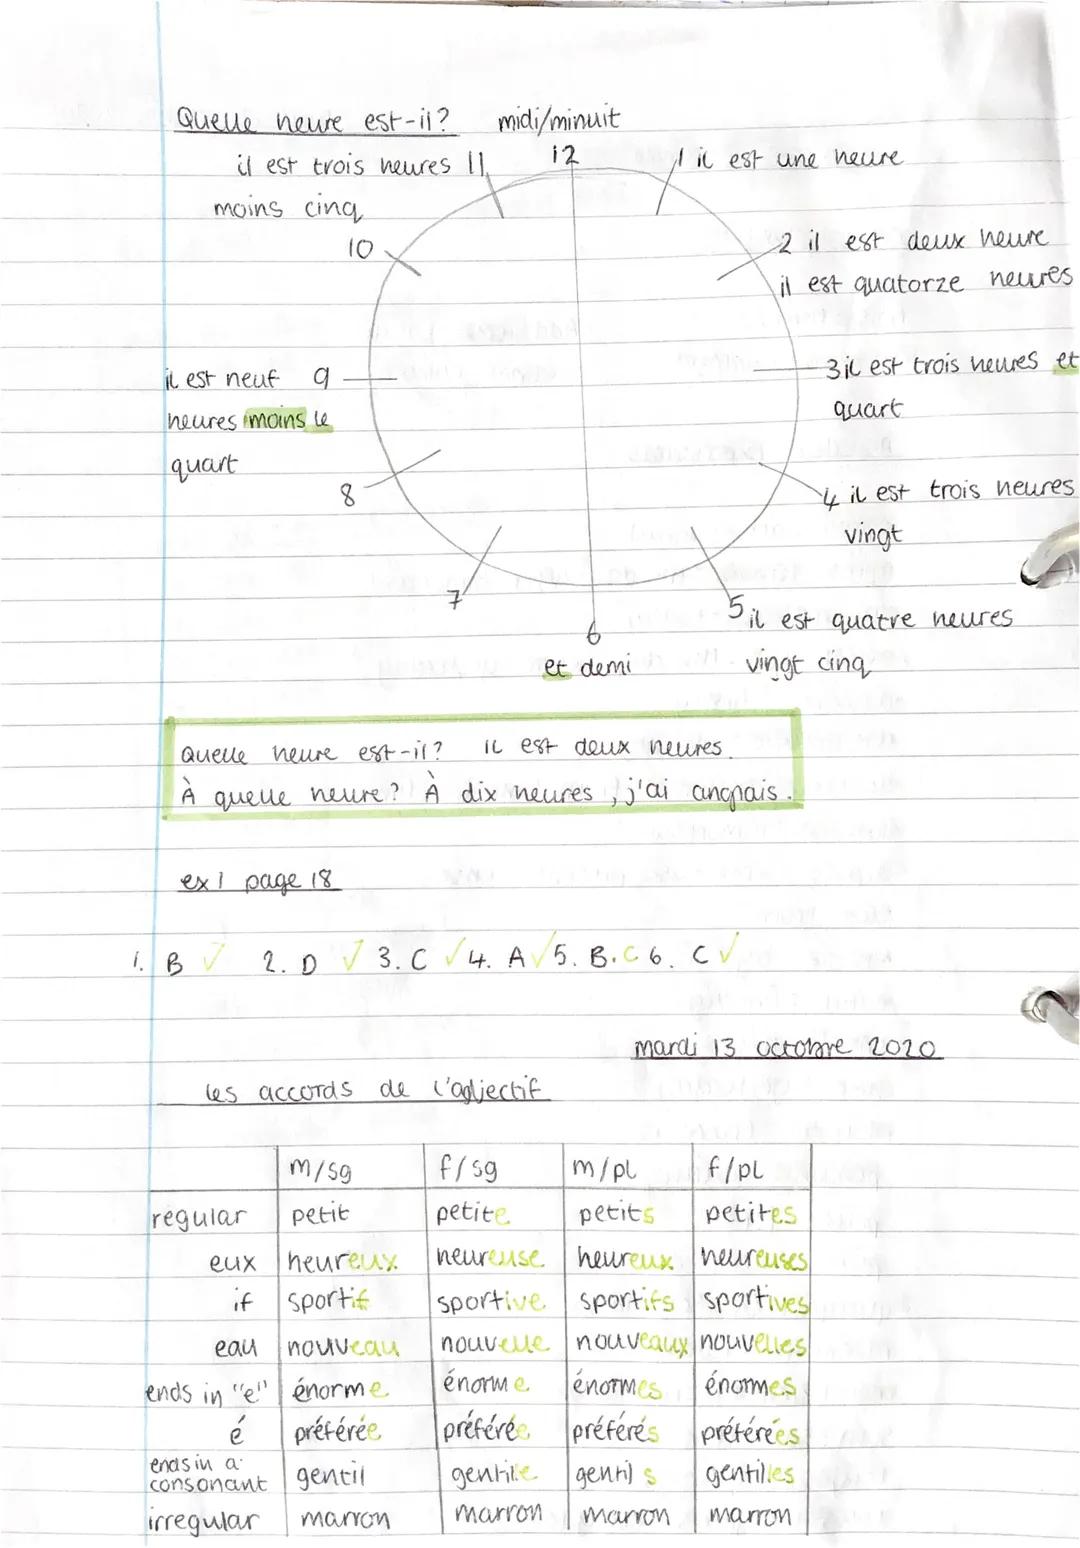 Quelle heure est-il? midi/minuit
12
il est trois heures 11
moins cinq
1 il est une heure
10
2 il est deux heure
il est quatorze heures
il est neuf 9
heures moins le
quart
3 il est trois heures et
quart
8
4 il est trois heures
vingt
7
5 il est quatre heures
vingt cinq
6
et demi
Quelle heure est-il? il est deux heures.
À quelle heure? À dix heures, j'ai angnais.
ex 1 page 18
1. B ✓ 2. D ✓ 3. C ✓ 4. A ✓ 5. B. C 6. C ✓
mardi 13 octobre 2020
les accords de l'adjectif
m/sg f/sg m/pl f/pl
regular petit petite petits petites
eux heureux heureuse heureux heureuses
if sportif sportive sportifs sportives
eau nouveau nouvelle nouveaux nouvelles
ends in "e" énorme énorme énormes énormes
é préférée préférée préférés préférées
ends in a
consonant gentil gentille gentils gentilles
irregular marron marron marron marron